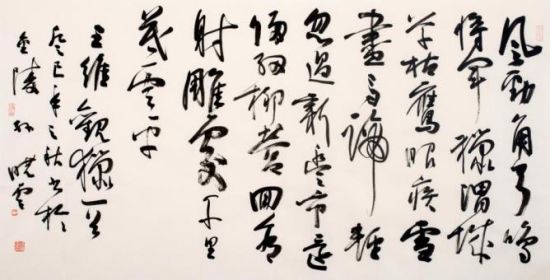 風勁角弓鳴
將軍獵渭城
草枯鷹眼疾雪
盡馬蹄輕
忽過新豐市還
歸細柳營回看
射雕處千里
暮雲平
王維觀獵一首
癸巳年之秋書於
金陵孫曉雲